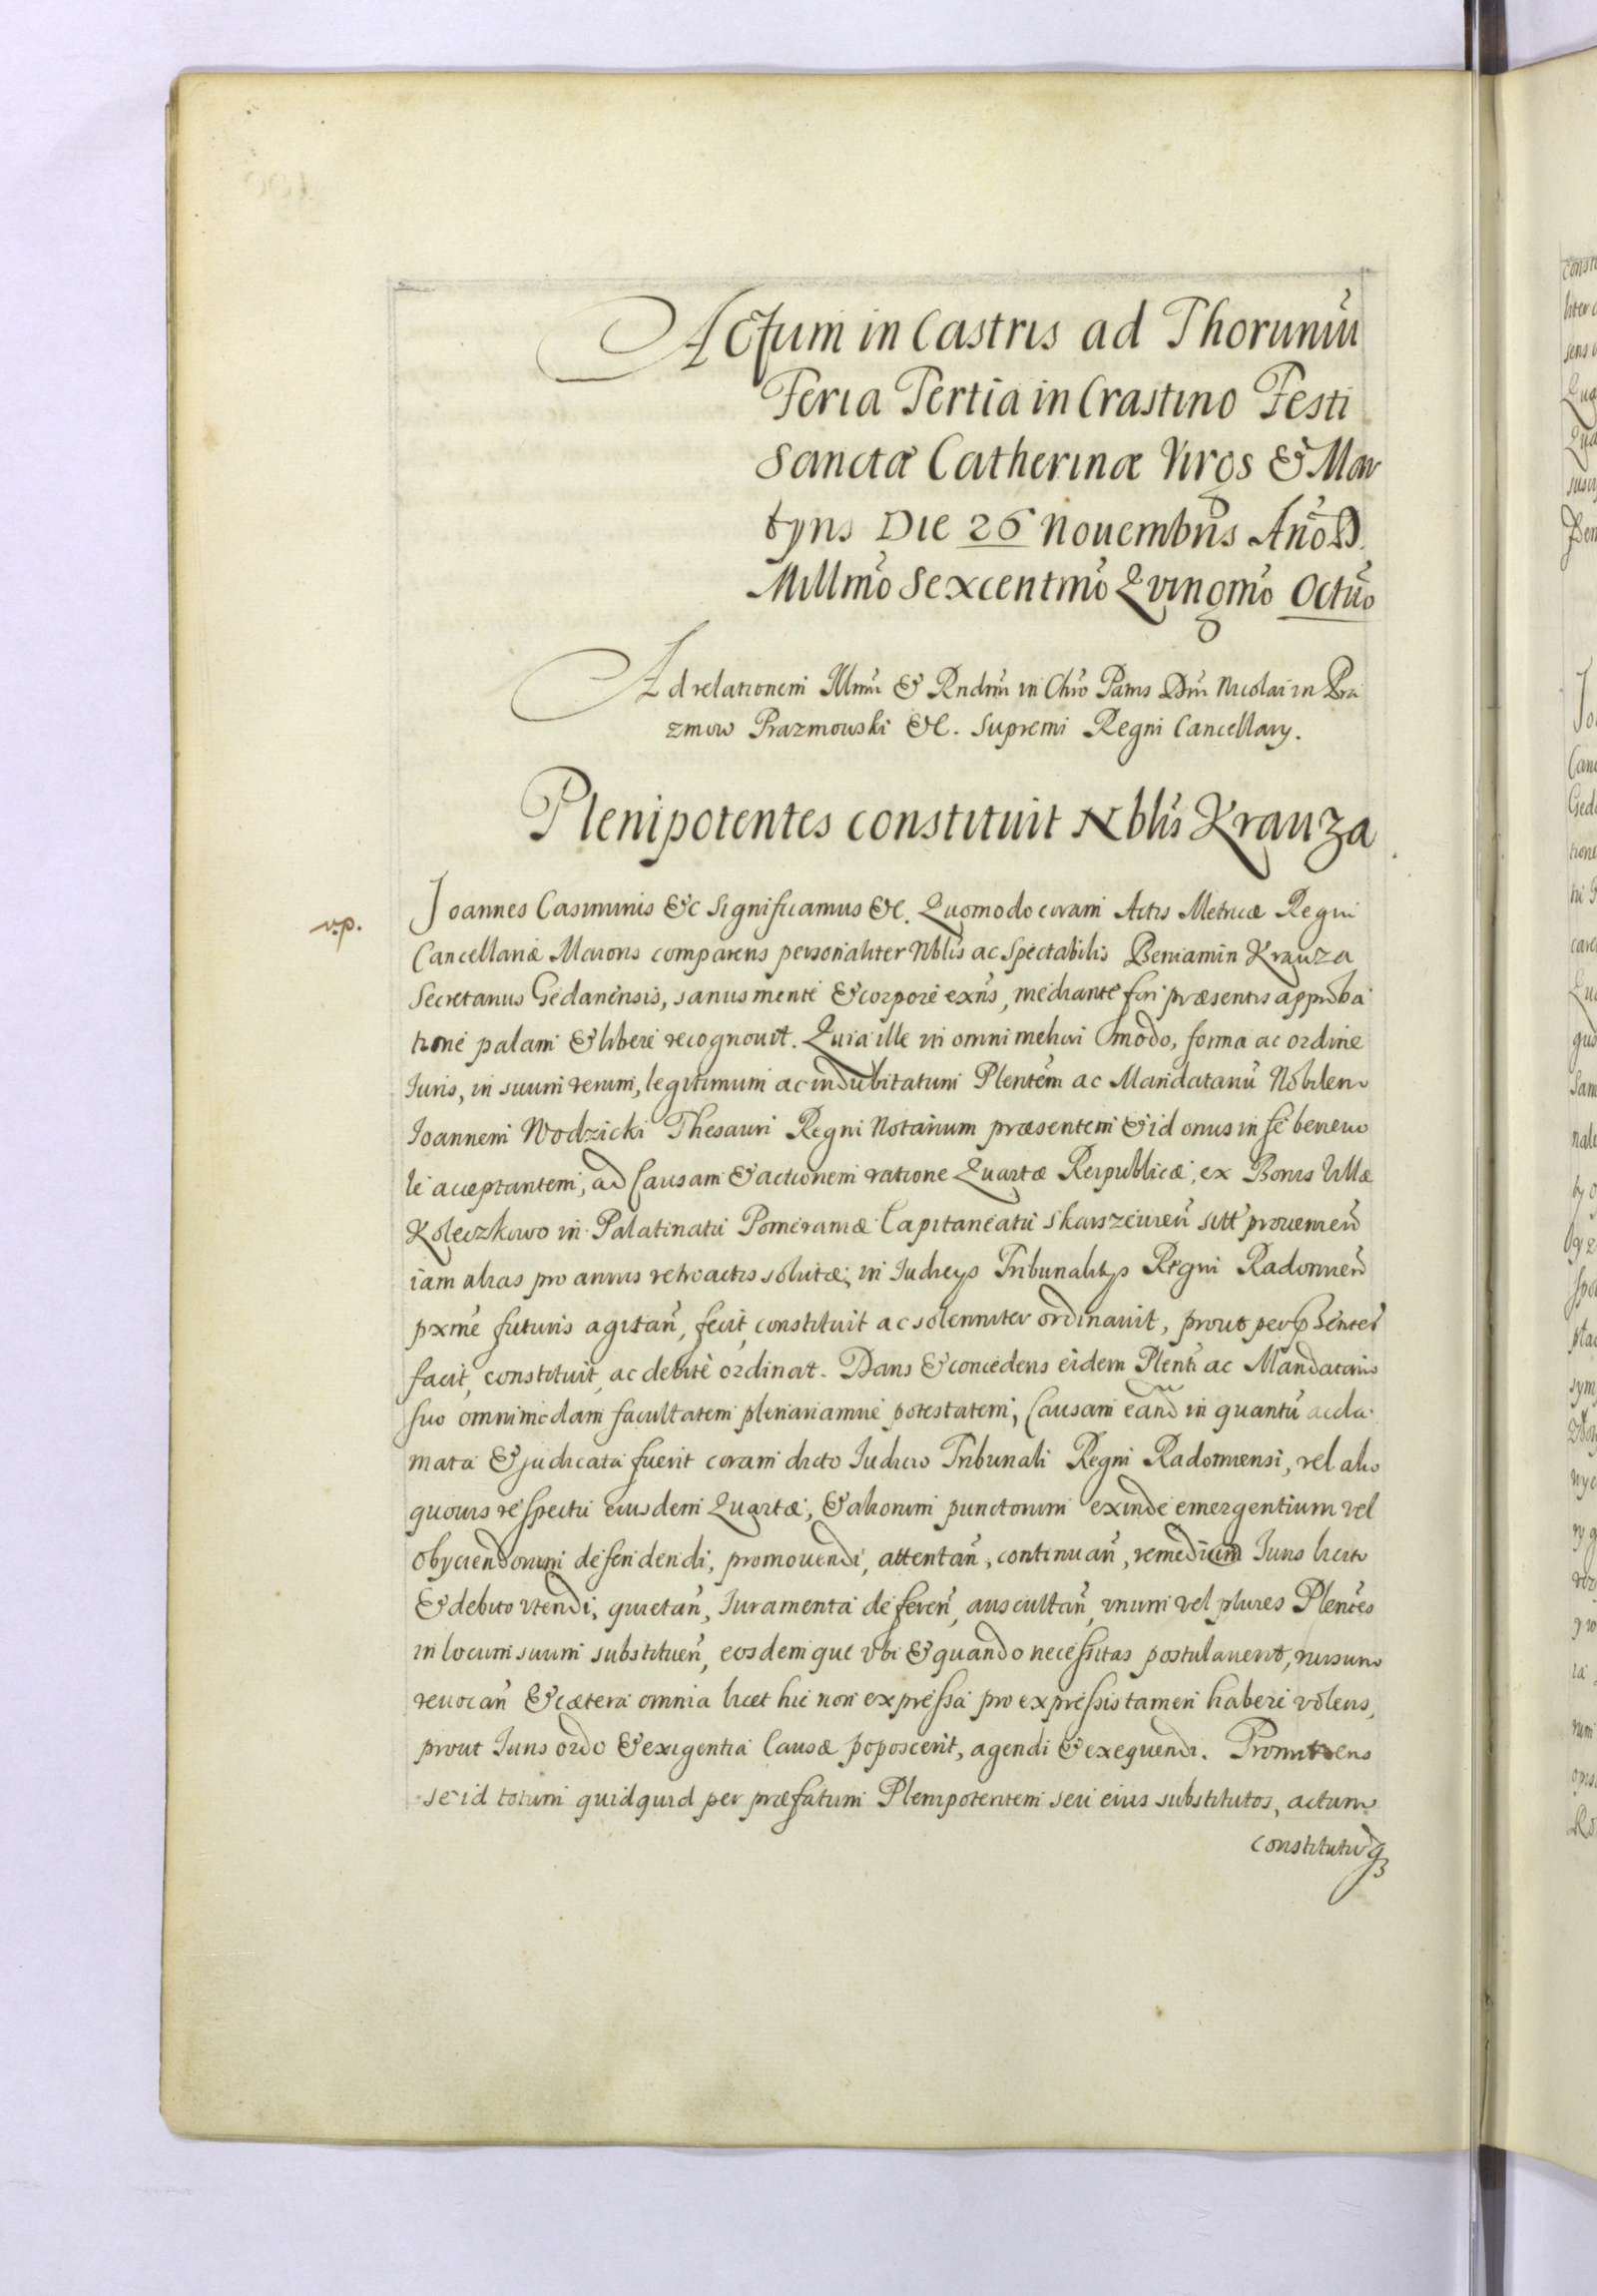 Actum in Castris ad Thoruniũ
Feria Tertia in Crastino Festi
Sanctæ Catherinæ Virgs & Mar
tyris Die 26 Nouembris Añõ D.
Millmõ Sexcentmõ Qvingmõ Octũo
Ad relationem Illmi & Rndmi in Chro Patris Dni Nicolai in Pra
zmow Prazmowski &c. Supremi Regni Cancellarij.
Plenipotentes constituit Nblis Krauza
v.p.
Joannes Casimirus &c Significamus &c. Quomodo coram Actis Metricæ Regni
Cancellariæ Maioris comparens personaliter Nblis ac Spectabilis Beniamin Krauza
Secretarius Gedanensis, sanus mente & corpore exñs, mediante fori præsentis approba
tione palam & libere recognouit. Quia ille in omni meliori modo, forma ac ordine
Iuris, in suum verum, legitimum ac indubitatum Plentem ac Mandatariũ Nobilem
Joannem Wodzicki Thesauri Regni Notarium præsentem & id onus in se beneuo
le acceptantem, ad Causam & actionem ratione Quartæ Reipublicæ, ex Bonis Villæ
Koleczkowo in Palatinatu Pomeraniæ Capitaneatu Skarszeuieñ sitt prouenieñ
iam alias pro annis retroactis solutæ, in Iudicijs Tribunalitijs Regni Radomieñ
pxme futuris agitañ, fecit, constituit ac solenniter ordinauit, prout per pñsentes
facit, constituit, ac debite ordinat. Dans & concedens eidem Plenti ac Mandatario
suo omnimodam facultatem plenariamue potestatem, Causam eand in quantũ accla
mata & judicata fuerit coram dicto Iudicio Tribunali Regni Radomiensi, vel alio
quouis respectu eiusdem Quartæ, & aliorum punctorum exinde emergentium vel
obyciendorum defendendi, promouendi, attentañ, continuañ, remedium Iuris licito
& debito vtendi, quietañ, Iuramenta defereñ, auscultañ, vnum vel plures Plentes
in locum suum substitueñ, eosdemque vbi & quando necessitas postulauerit, rursum
reuocañ & cætera omnia licet hic non expressa pro expressis tamen haberi volens,
prout Iuris ordo & exigentia Causæ poposcerit, agendi & exequendi. Promittens
se id totum quidquid per præfatum Plenipotentem seu eius substitutos, actum
constitutũq3